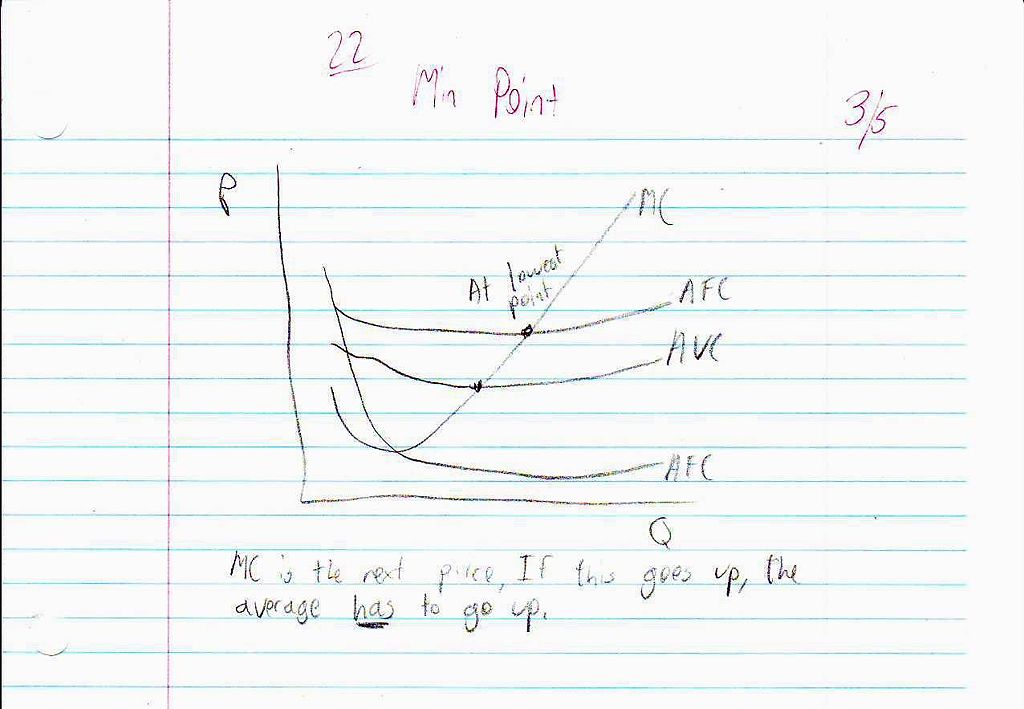 22
Min Point
3/5
P
MC
At lowest
point
AFC
AVC
AFC
Q
MC is the next price, If this goes up, the
average has to go up.